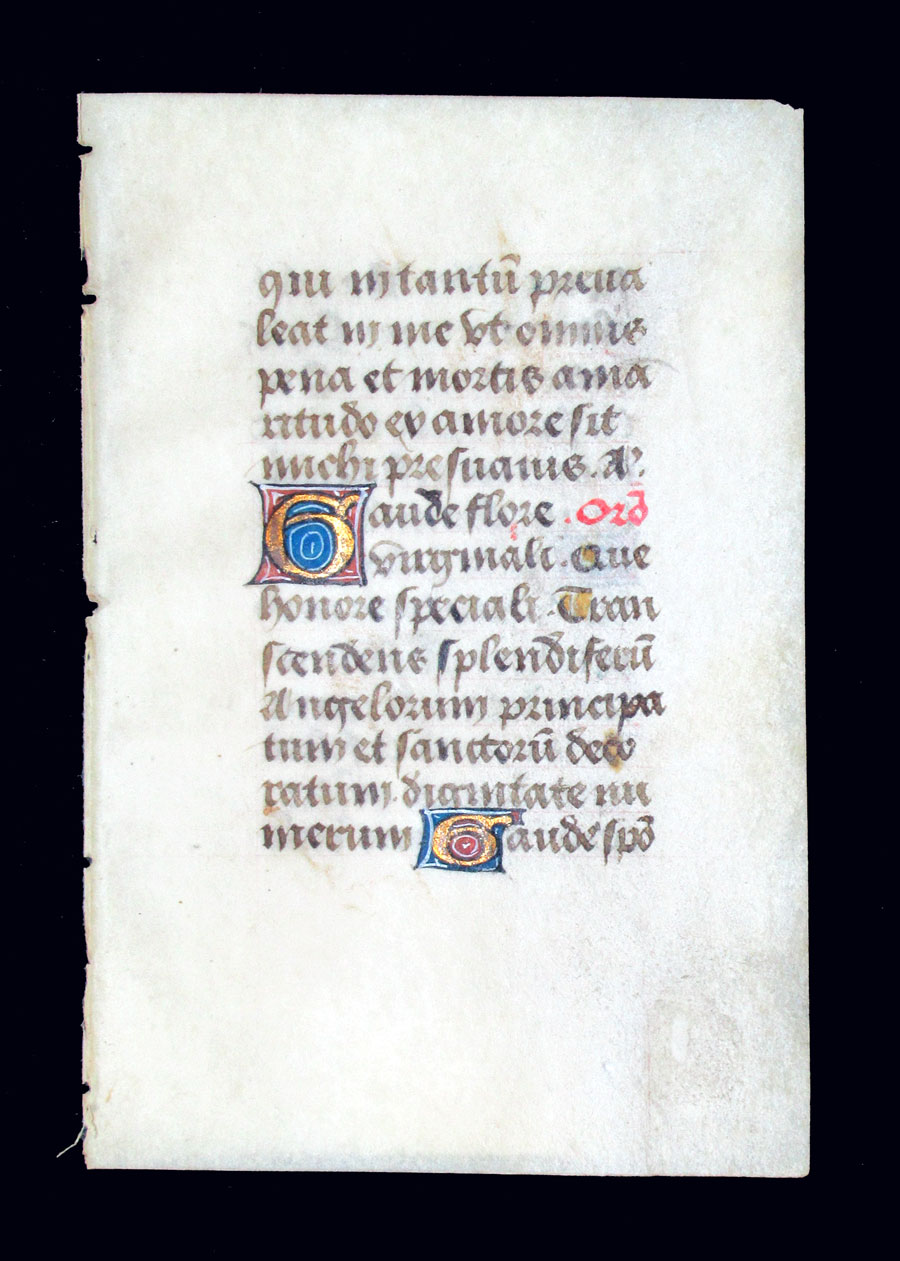 qui in tantũ preua
leat in me vt omnis
pena et mortis amã
ritudo ex amore sit
michi presuauis. A͂.
Gaude flore .Orõ
virginali. Que
honore speciali. Tran
scendens splendiferũ
Angelorum principa
tum et sanctorũ deco
ratum. dignitate nu
merum Gaude spõ